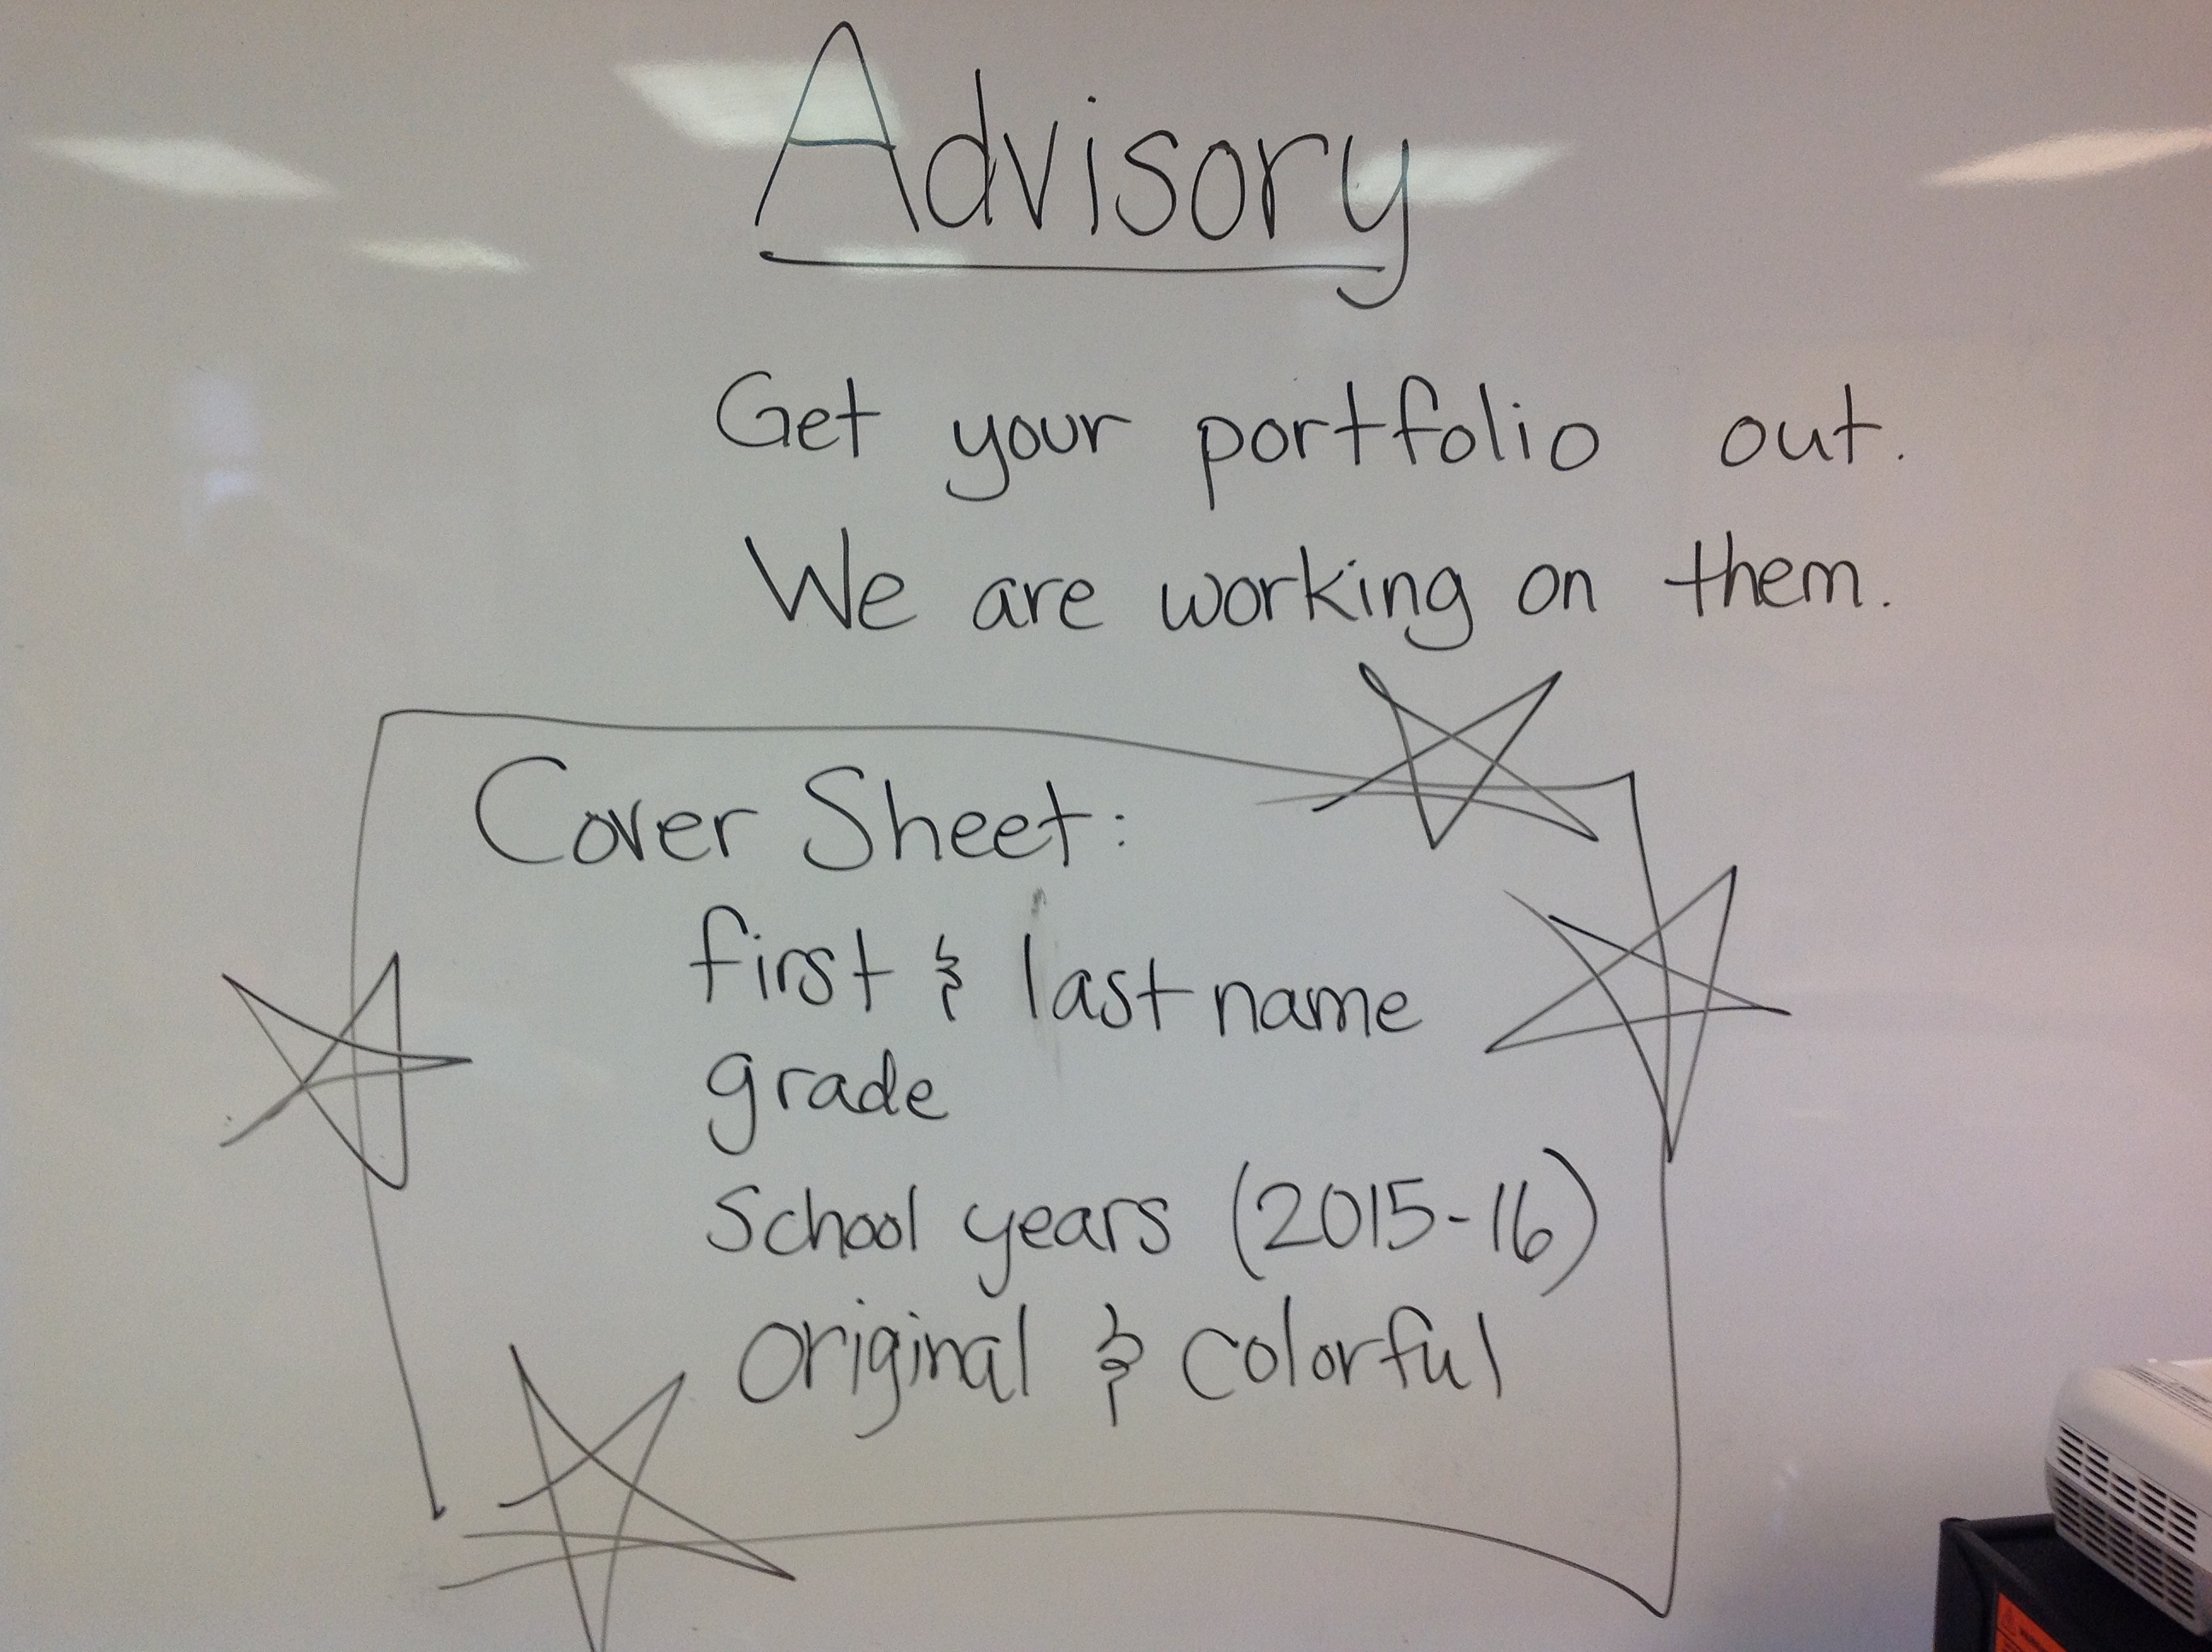 Advisory
Get your portfolio out.
We are working on them.
Cover Sheet:
first & last name
grade
School years (2015-16)
original & colorful